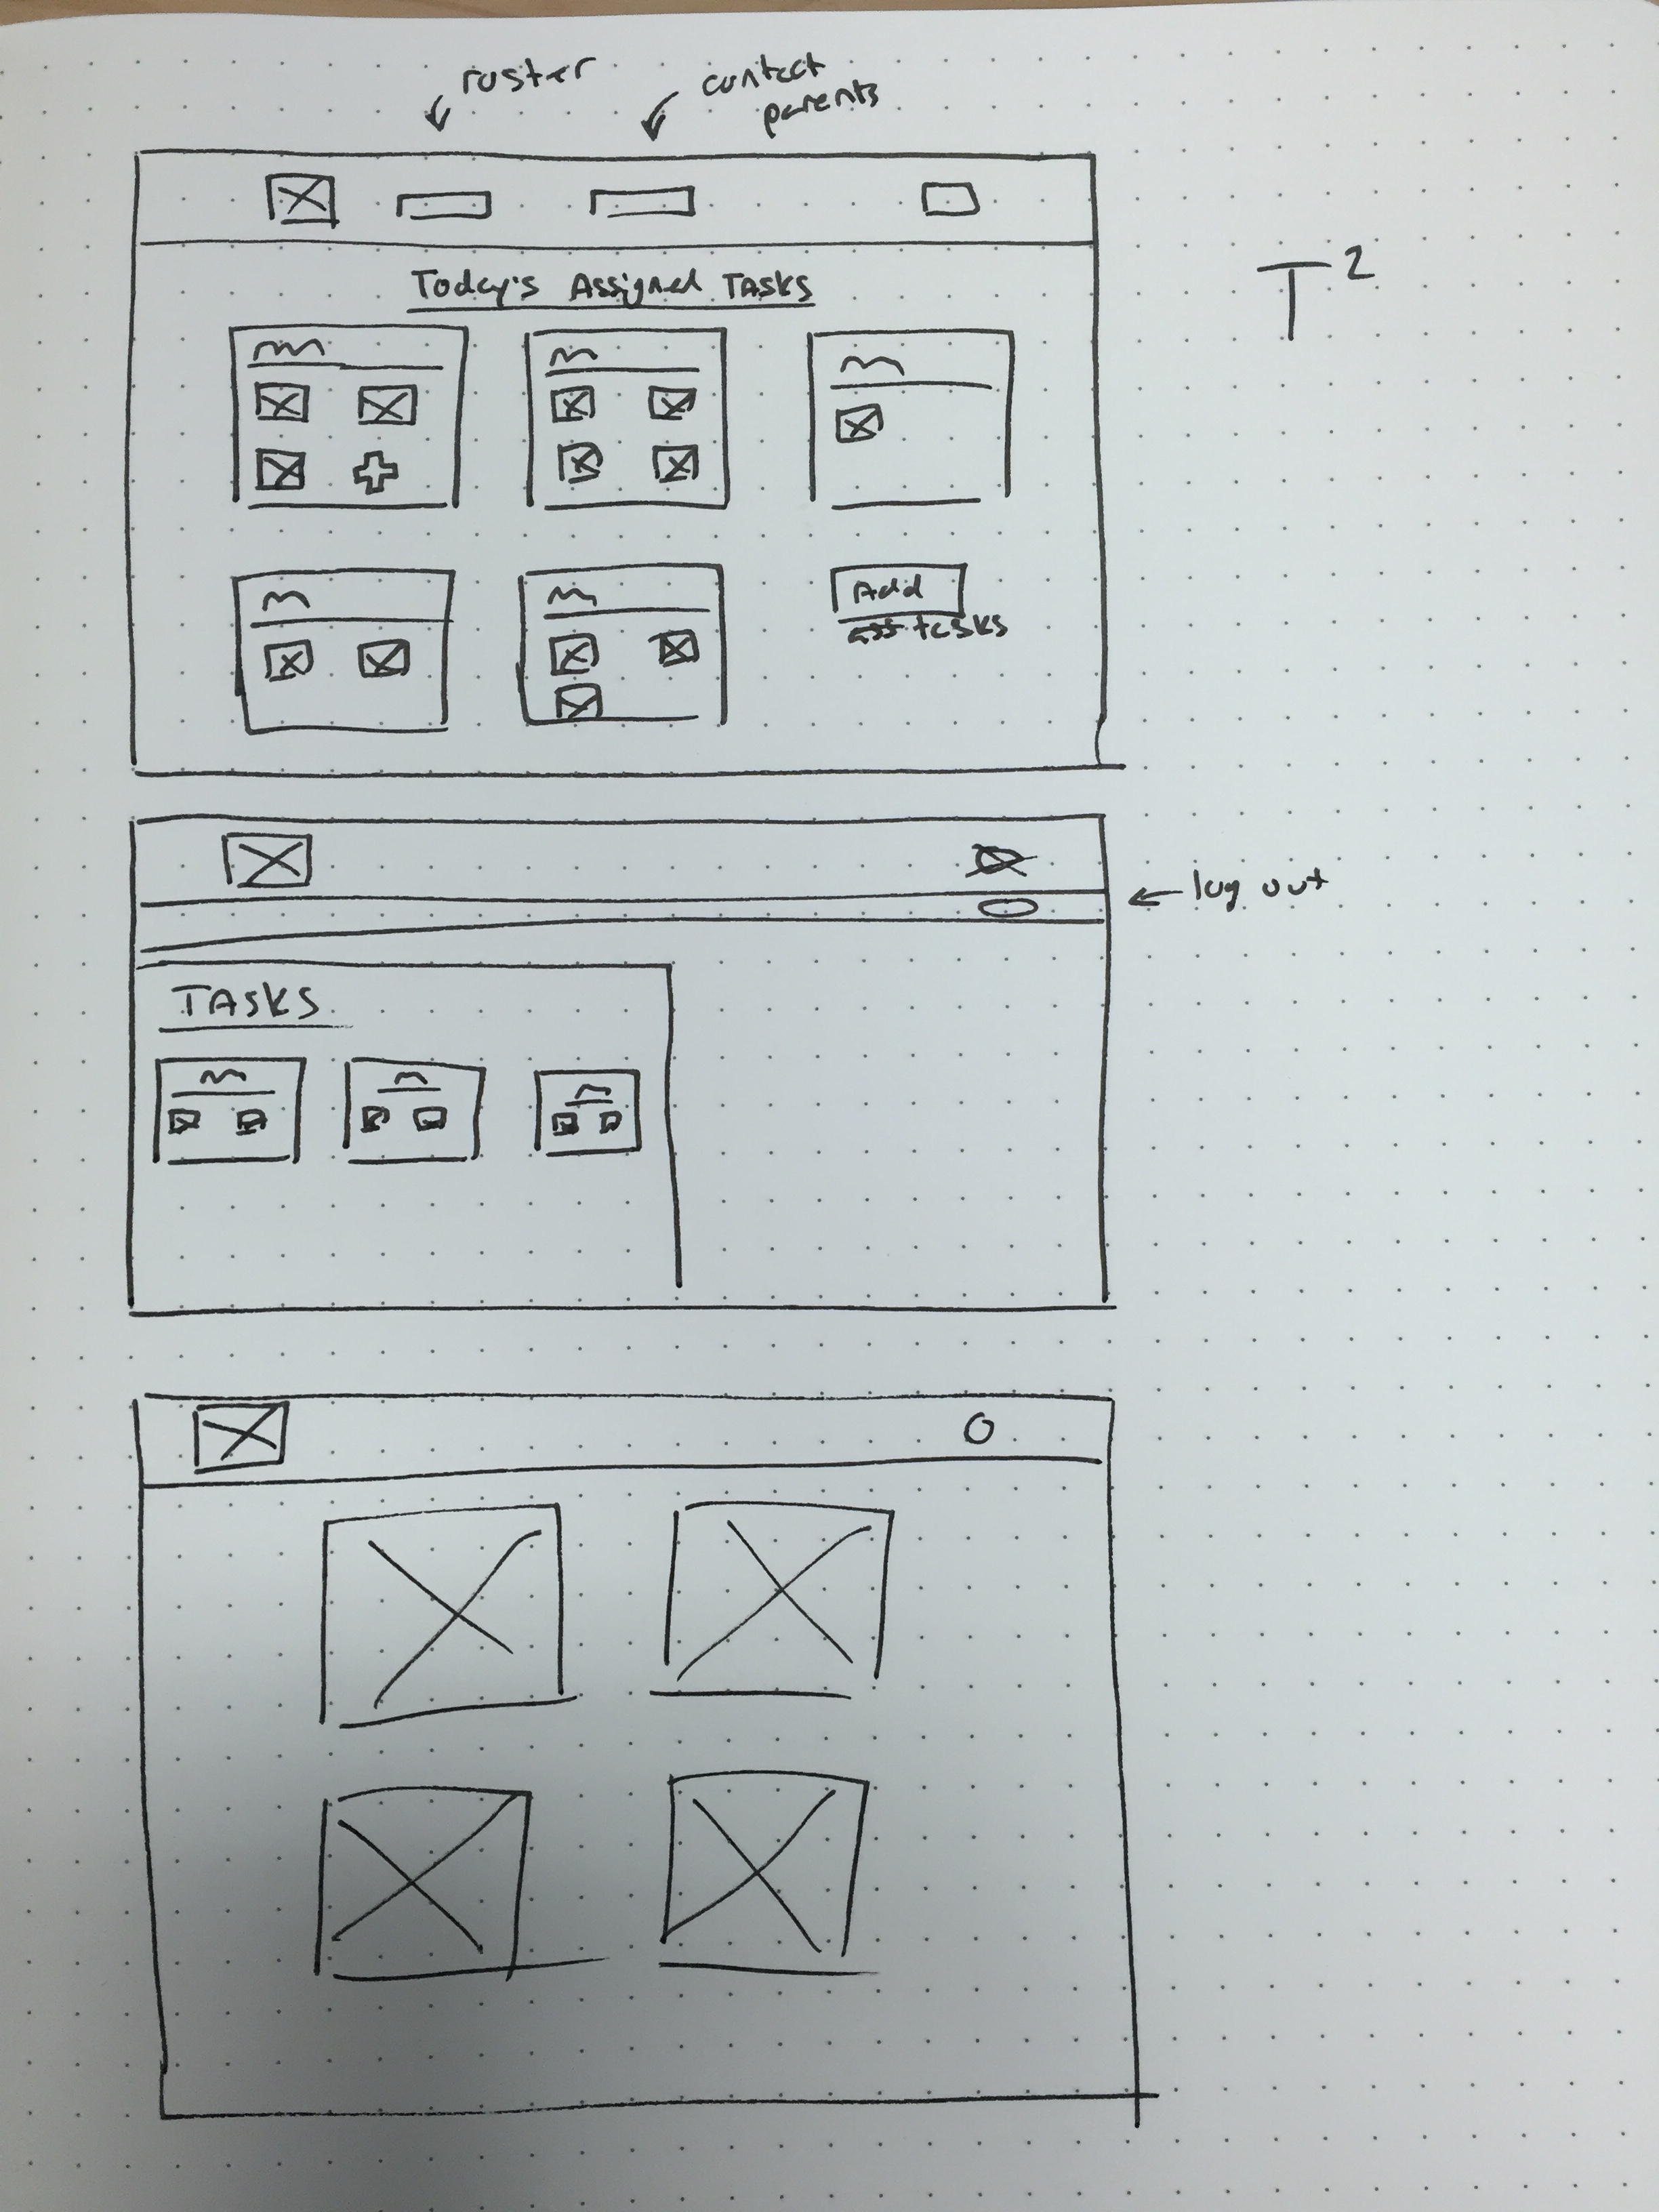 roster
contact
parents
T²
Today's Assigned Tasks
Add
tasks
log out
TASKS